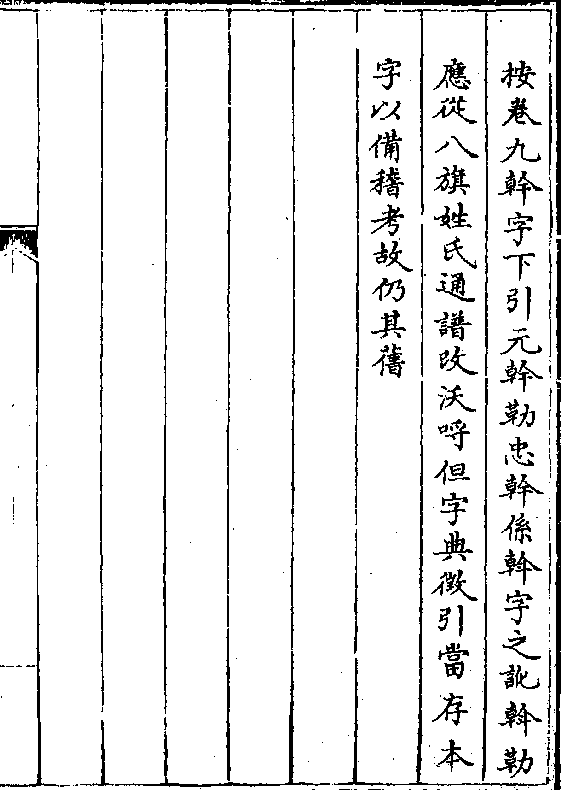 按卷九斡字下引元斡勒忠斡係斡字之訛斡勒
應從八旗姓氏通譜改沃哷但字典徵引當存本
字以備稽考故仍其舊